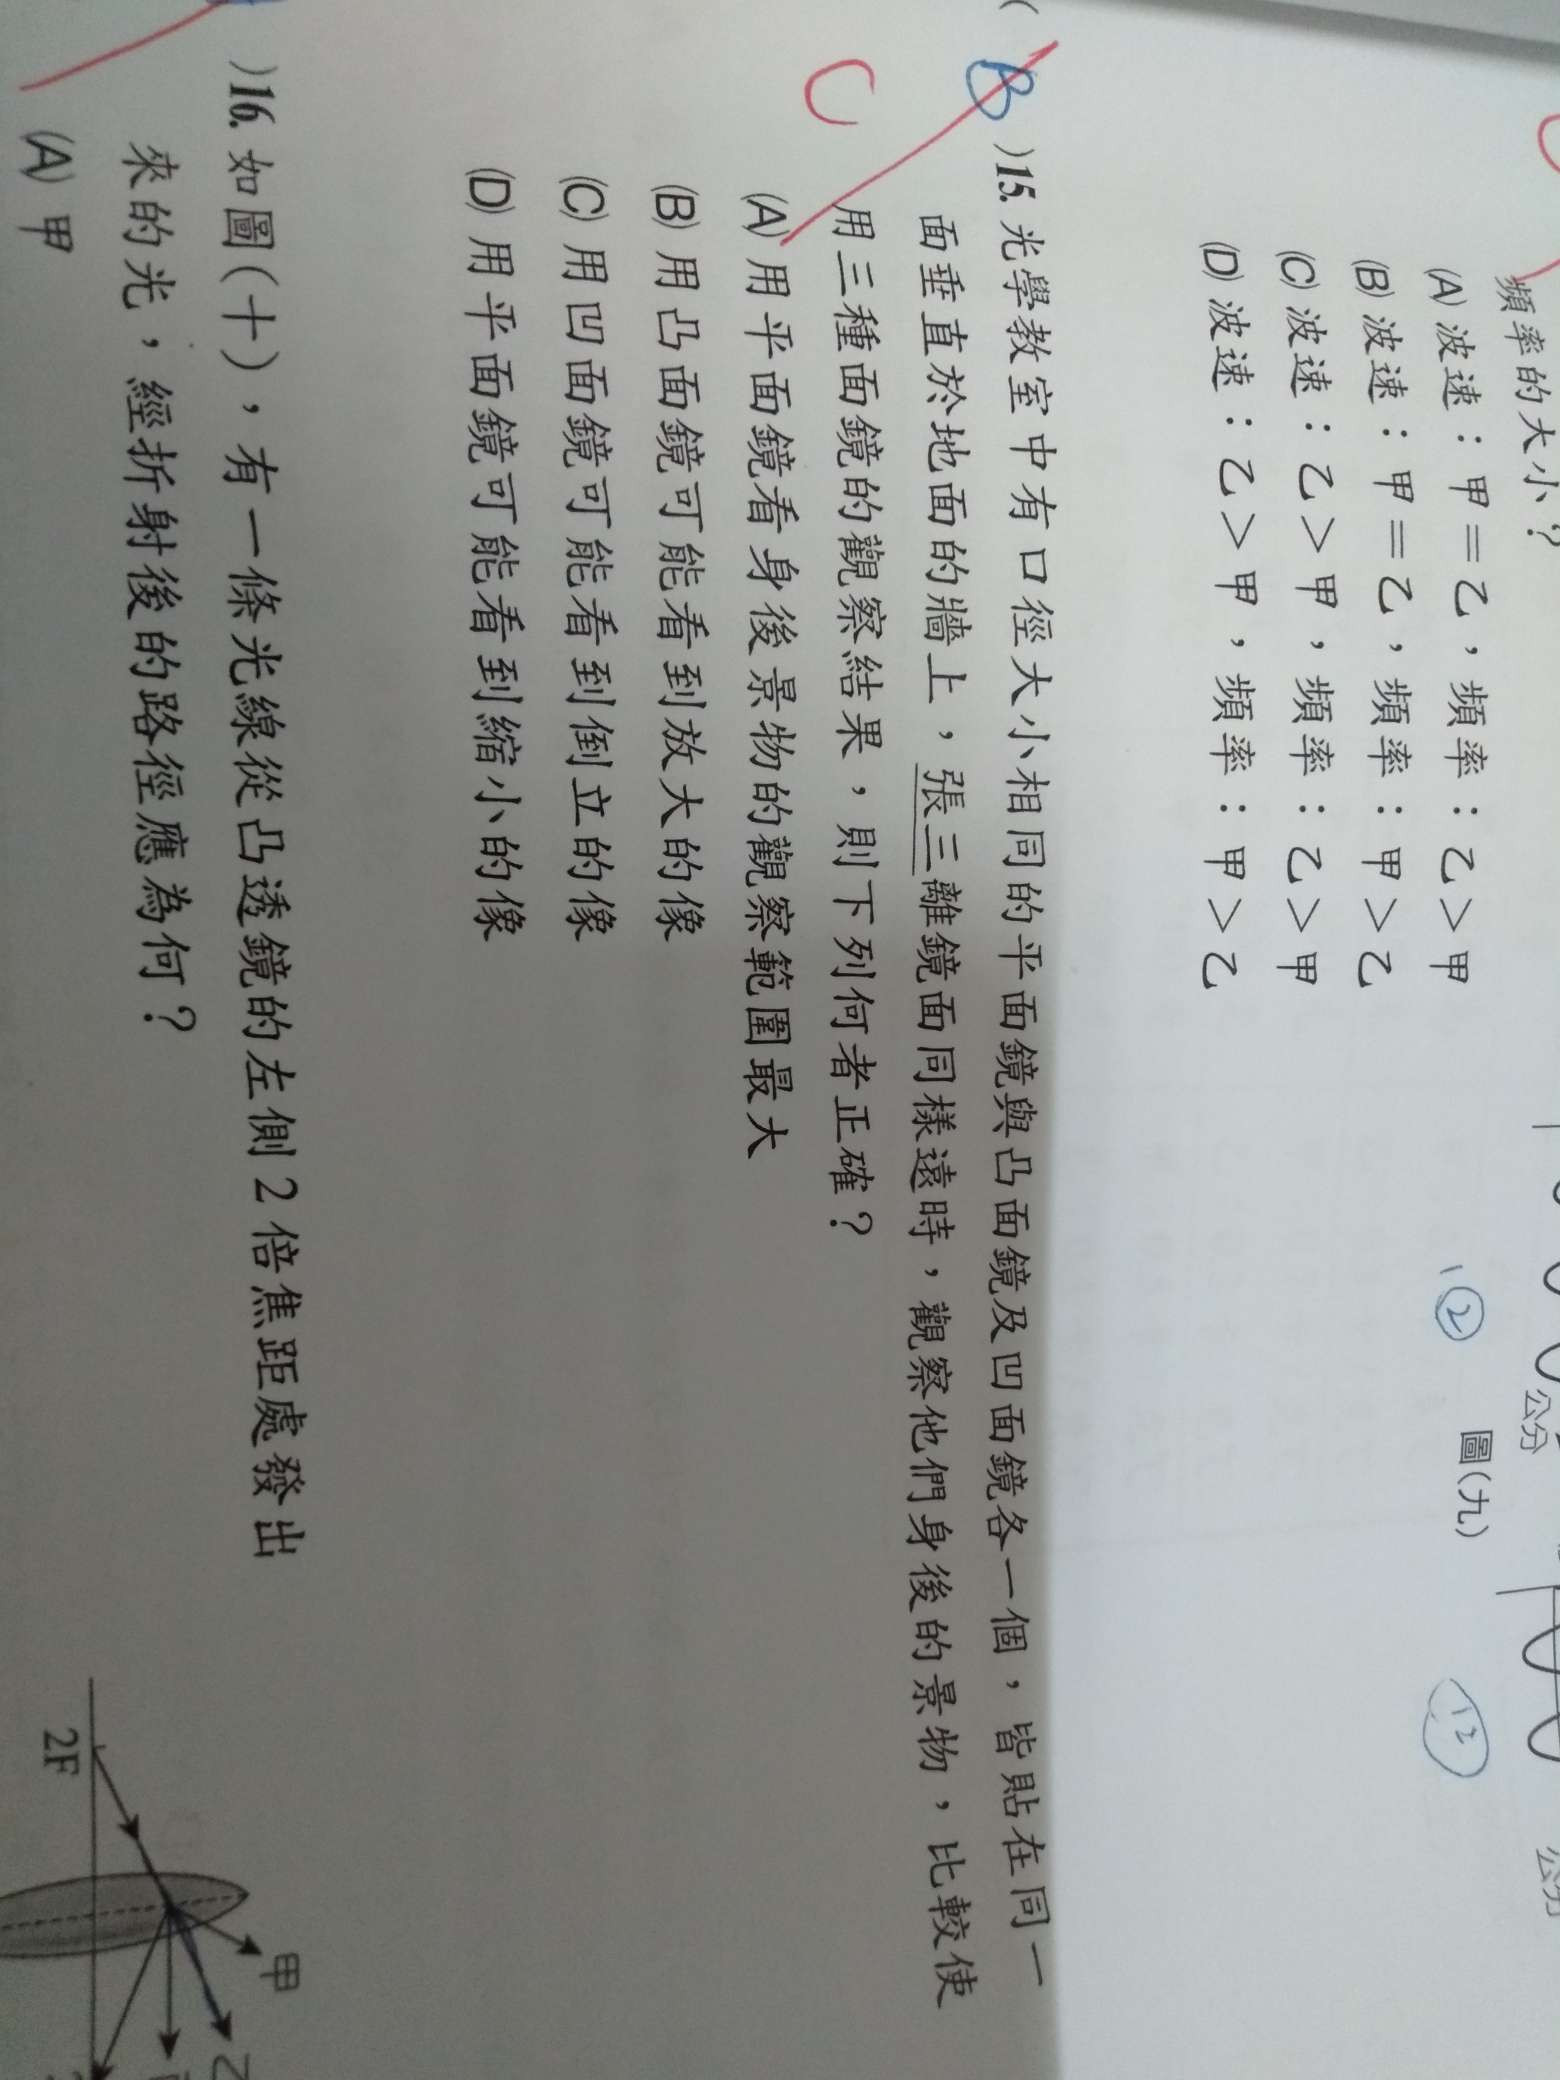 頻率的大小?
(A) 波速:甲=乙,頻率:乙>甲
(B) 波速:甲=乙,頻率:甲>乙
(C) 波速:乙>甲,頻率:乙>甲
(D) 波速:乙>甲,頻率:甲>乙
公分
公分
圖(九)
1 ②
12
( B )15. 光學教室中有口徑大小相同的平面鏡與凸面鏡及凹面鏡各一個,皆貼在同一
面垂直於地面的牆上,張三離鏡面同樣遠時,觀察他們身後的景物,比較使
用三種面鏡的觀察結果,則下列何者正確?
C
(A) 用平面鏡看身後景物的觀察範圍最大
(B) 用凸面鏡可能看到放大的像
(C) 用凹面鏡可能看到倒立的像
(D) 用平面鏡可能看到縮小的像
)16. 如圖(十),有一條光線從凸透鏡的左側2倍焦距處發出
來的光,經折射後的路徑應為何?
(A) 甲
甲
乙
2F